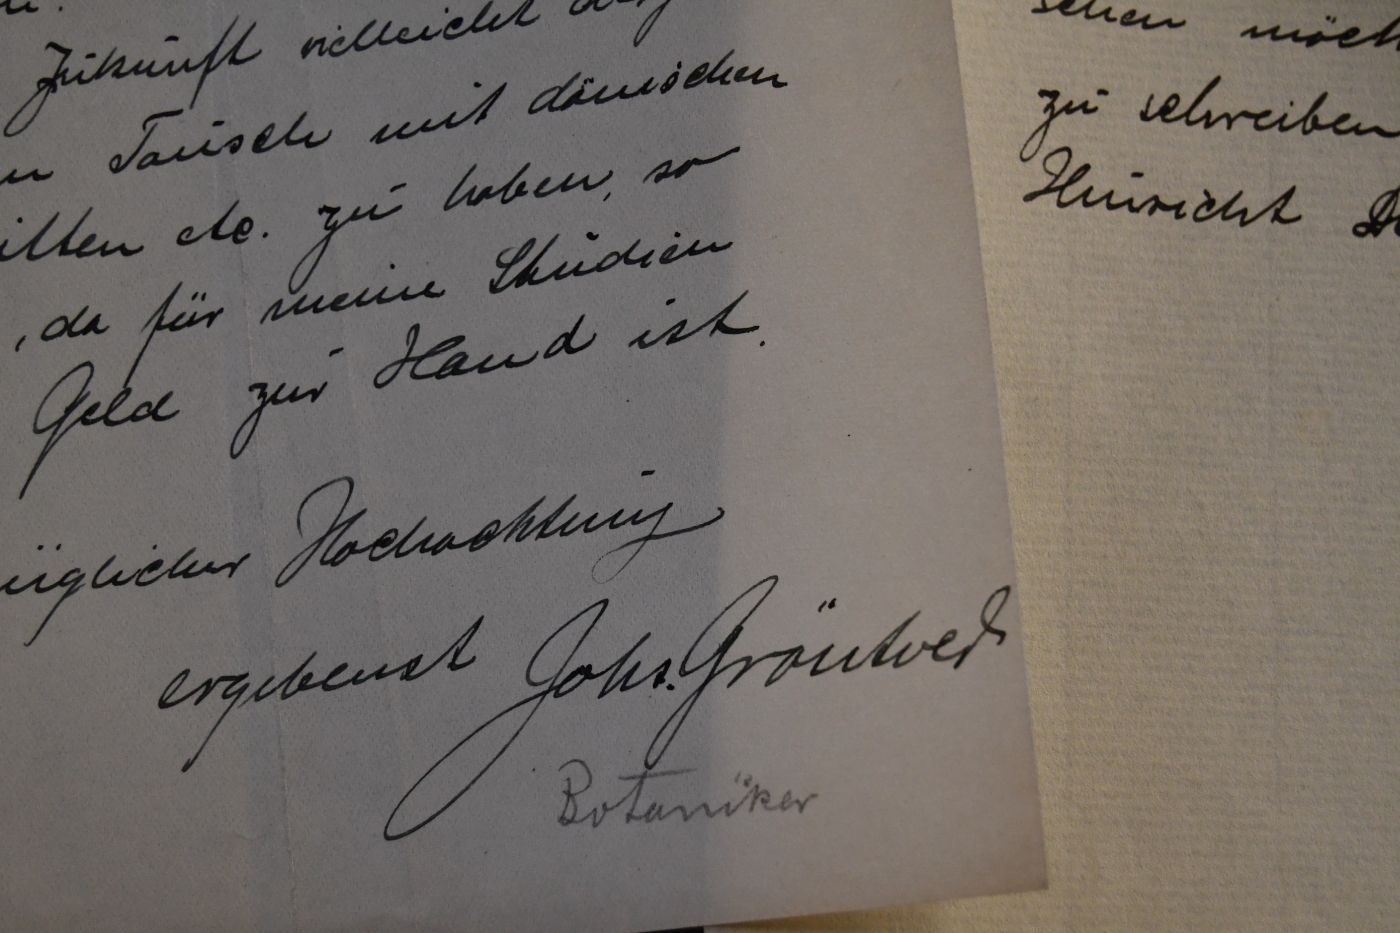 Zukunft vielleicht
Tausch mit dänischen
etc. zu haben, so
, da für meine Studien
Geld zur Hand ist.
Hochachtung
ergebenst Johs. Gröntved
Botaniker
möch
zu schreiben
Hinsicht